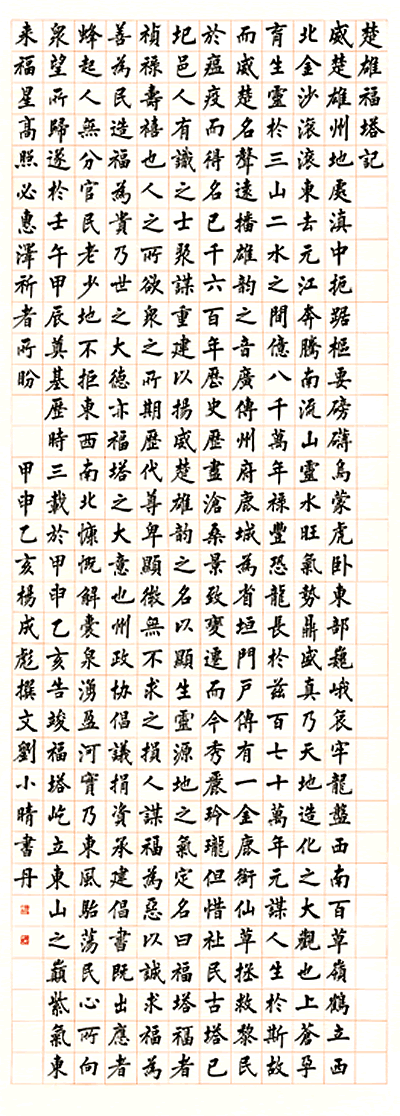 楚雄福塔記
威楚雄州地處滇中扼踞樞要磅礴烏蒙虎卧東部巍峨哀牢龍盤西南百草嶺鶴立西
北金沙滾滾東去元江奔騰南流山靈水旺氣勢鼎盛真乃天地造化之大觀也上蒼孕
育生靈於三山二水之間億八千萬年祿豐恐龍長於茲百七十萬年元謀人生於斯故
而威楚名聲遠播雄韵之音廣傳州府鹿城為省垣門戶傳有一金鹿銜仙草拯救黎民
於瘟疫而得名已千六百年歷史歷盡滄桑景致變遷而今秀麗玲瓏但惜社民古塔已
圮邑人有識之士聚謀重建以揚威楚雄韵之名以顯生靈源地之氣定名曰福塔福者
禎祿壽禧也人之所欲衆之所期歷代尊卑顯微無不求之損人謀福為惡以誠求福為
善為民造福為貴乃世之大德亦福塔之大意也州政協倡議捐資承建倡書既出應者
蜂起人無分官民老少地不拒東西南北慷慨解囊泉湧盈河實乃東風駘蕩民心所向
衆望所歸遂於壬午甲辰奠基歷時三載於甲申乙亥告竣福塔屹立東山之巔紫氣東
来福星高照必惠澤祈者所盼 甲申乙亥楊成彪撰文劉小晴書丹